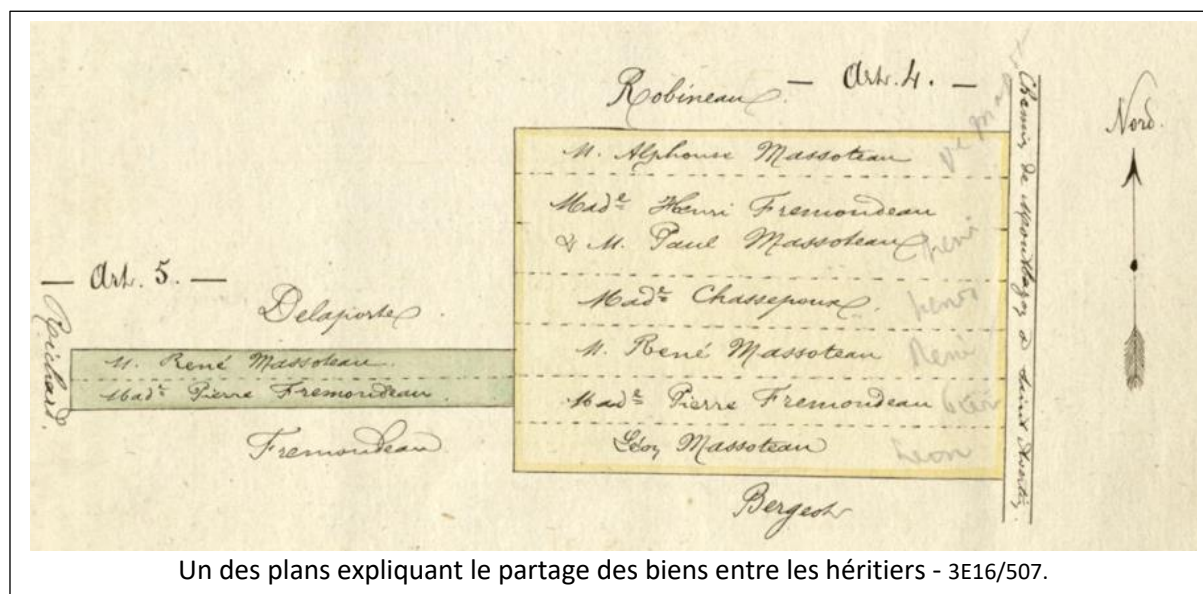 Robineau. — Art. 4. —
Nord.
M. Alphonse Massoteau
Mad.e Henri Fremondeau
& M. Paul Massoteau
Mad.e Chassepoux.
M. René Massoteau René
Mad.e Pierre Fremondeau
Léon Massoteau Leon
Bergeot
Chemin de Montbazon à Saint Avertin.
— Art. 5. —
Delaporte
M. René Massoteau.
Mad.e Pierre Fremondeau.
Fremondeau
Richard.
Un des plans expliquant le partage des biens entre les héritiers - 3E16/507.